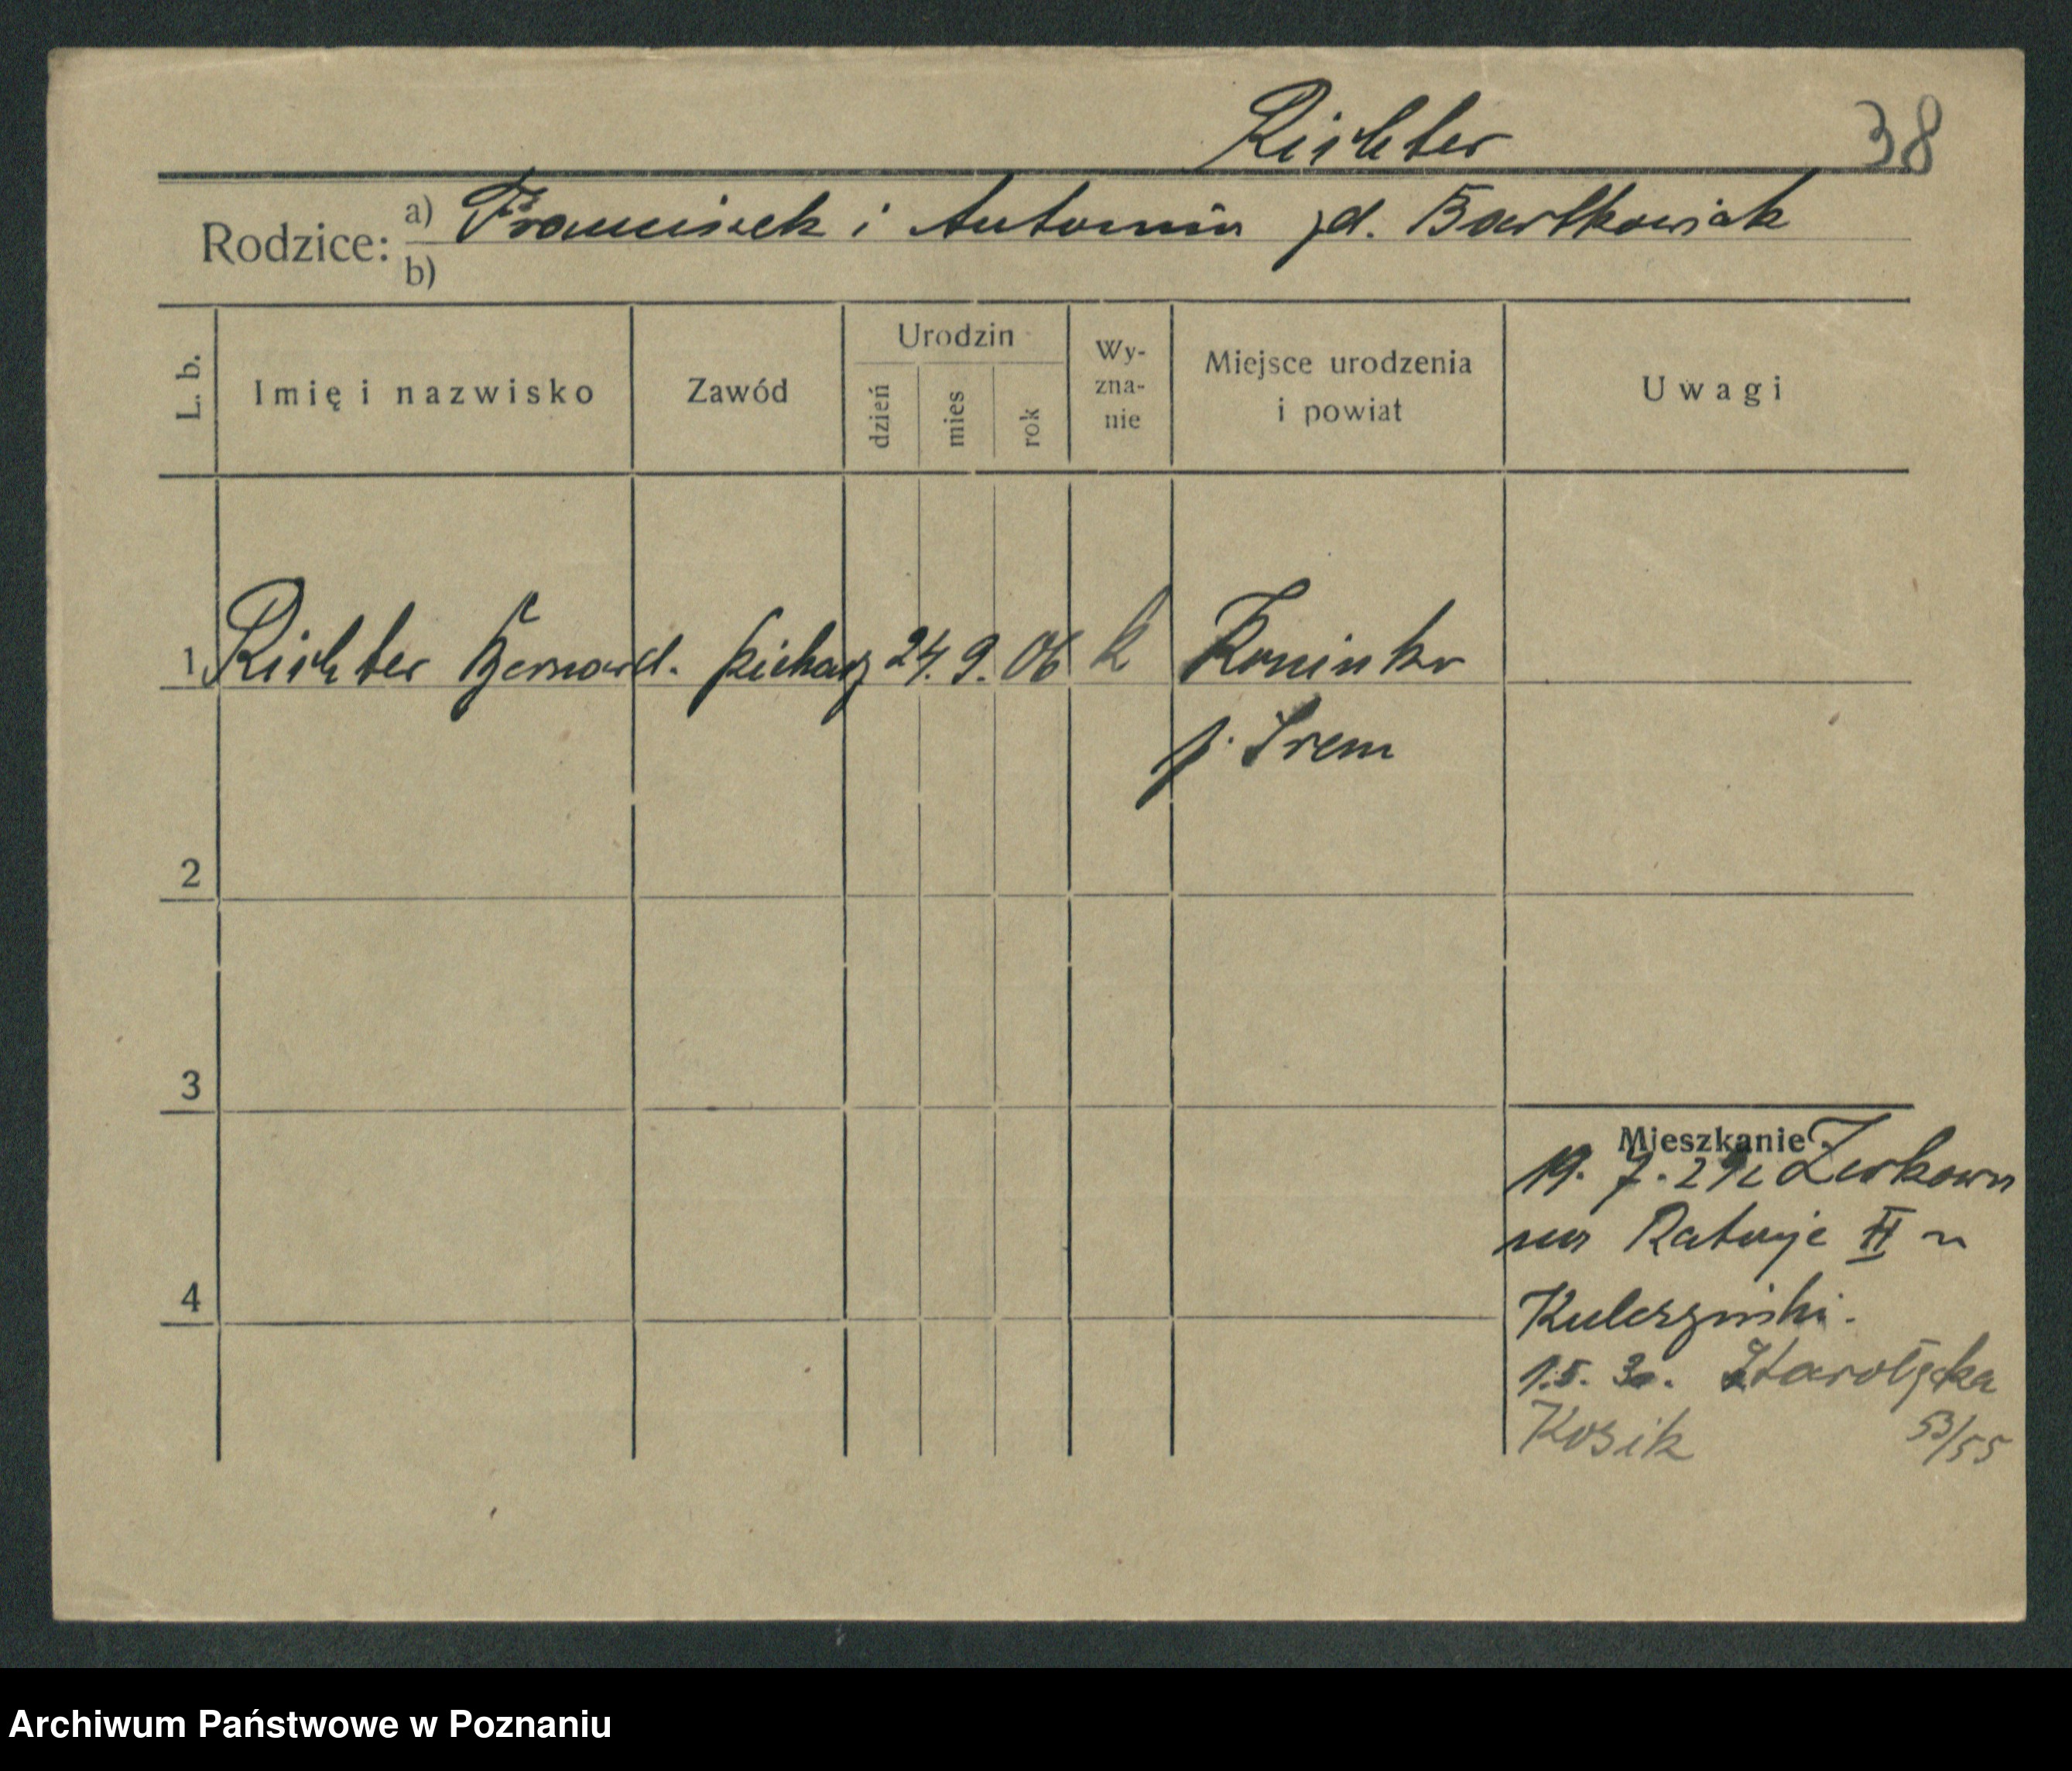 Richter 38
Rodzice: a) Franciszek i Antonina zd. Bartkowiak
b)
L. b. Imię i nazwisko Zawód Urodzin dzień mies rok Wy-zna-nie Miejsce urodzenia i powiat Uwagi
1 Richter Bernard. piekarz 24. 9. 06 k Koninko
p. Śrem
2
3
Mieszkanie
19. 7. 29 z Zerkowa
na Rataje II u
4
Kulczyński.
1.5. 30. Starołęcka
Kosik 53/55
Archiwum Państwowe w Poznaniu